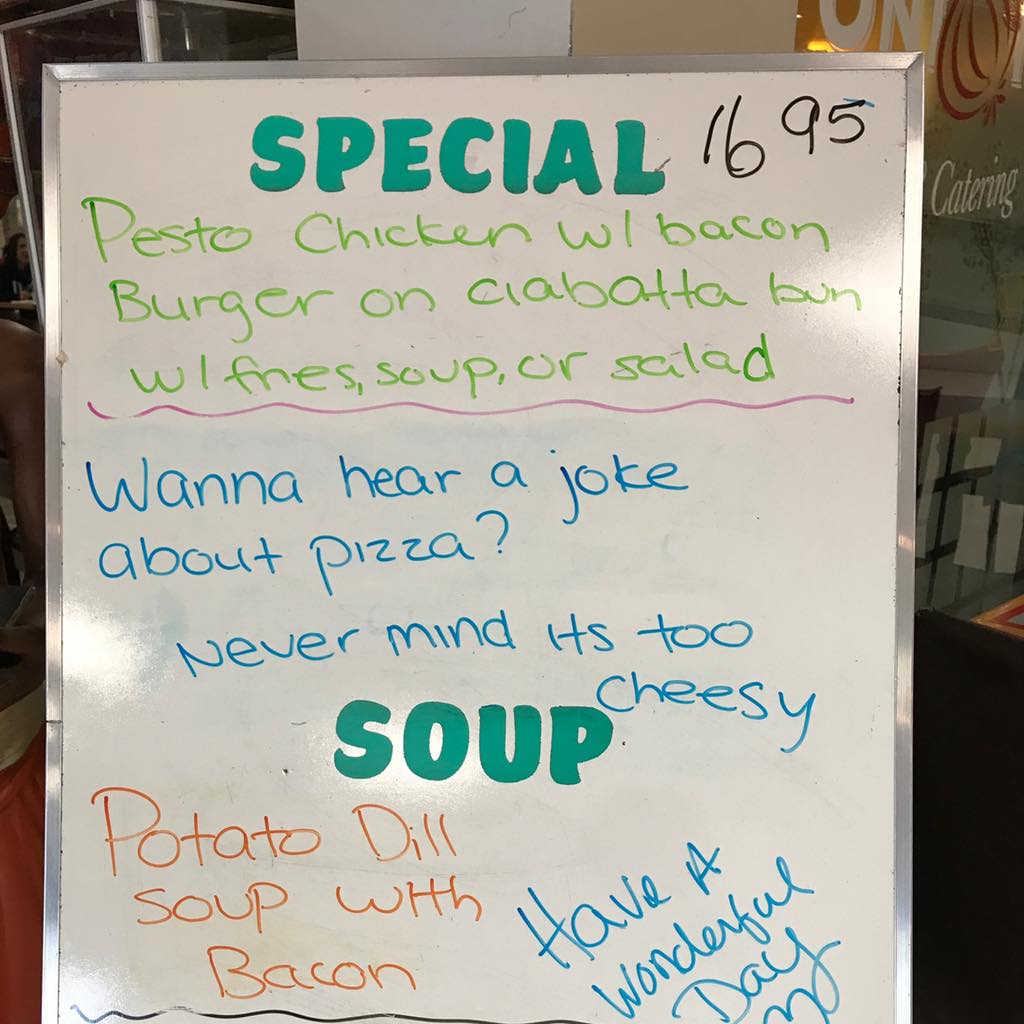 ON
Catering
SPECIAL 16 95
Pesto Chicken w/ bacon
Burger on ciabatta bun
w/ fries, soup, or salad
Wanna hear a joke
about pizza?
Never mind its too
cheesy
SOUP
Potato Dill
soup with
Bacon
Have A
wonderful
Day